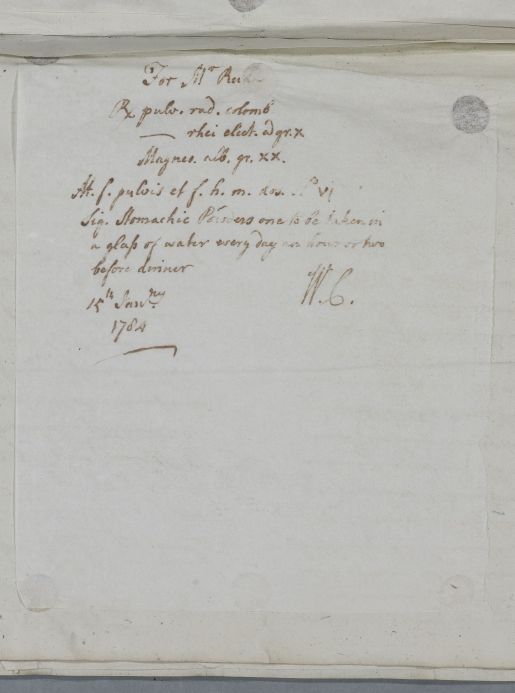 For Mr
Rx pulv. rad. colomb
— rhei elect. a gr. x
Magnes. alb. gr. xx.
M. f. pulvis et f. h. m. dos. No VI
Sig. Stomachic Powders one to be taken in
a glass of water every day an hour or two
before dinner
15th Janry W.C.
1784